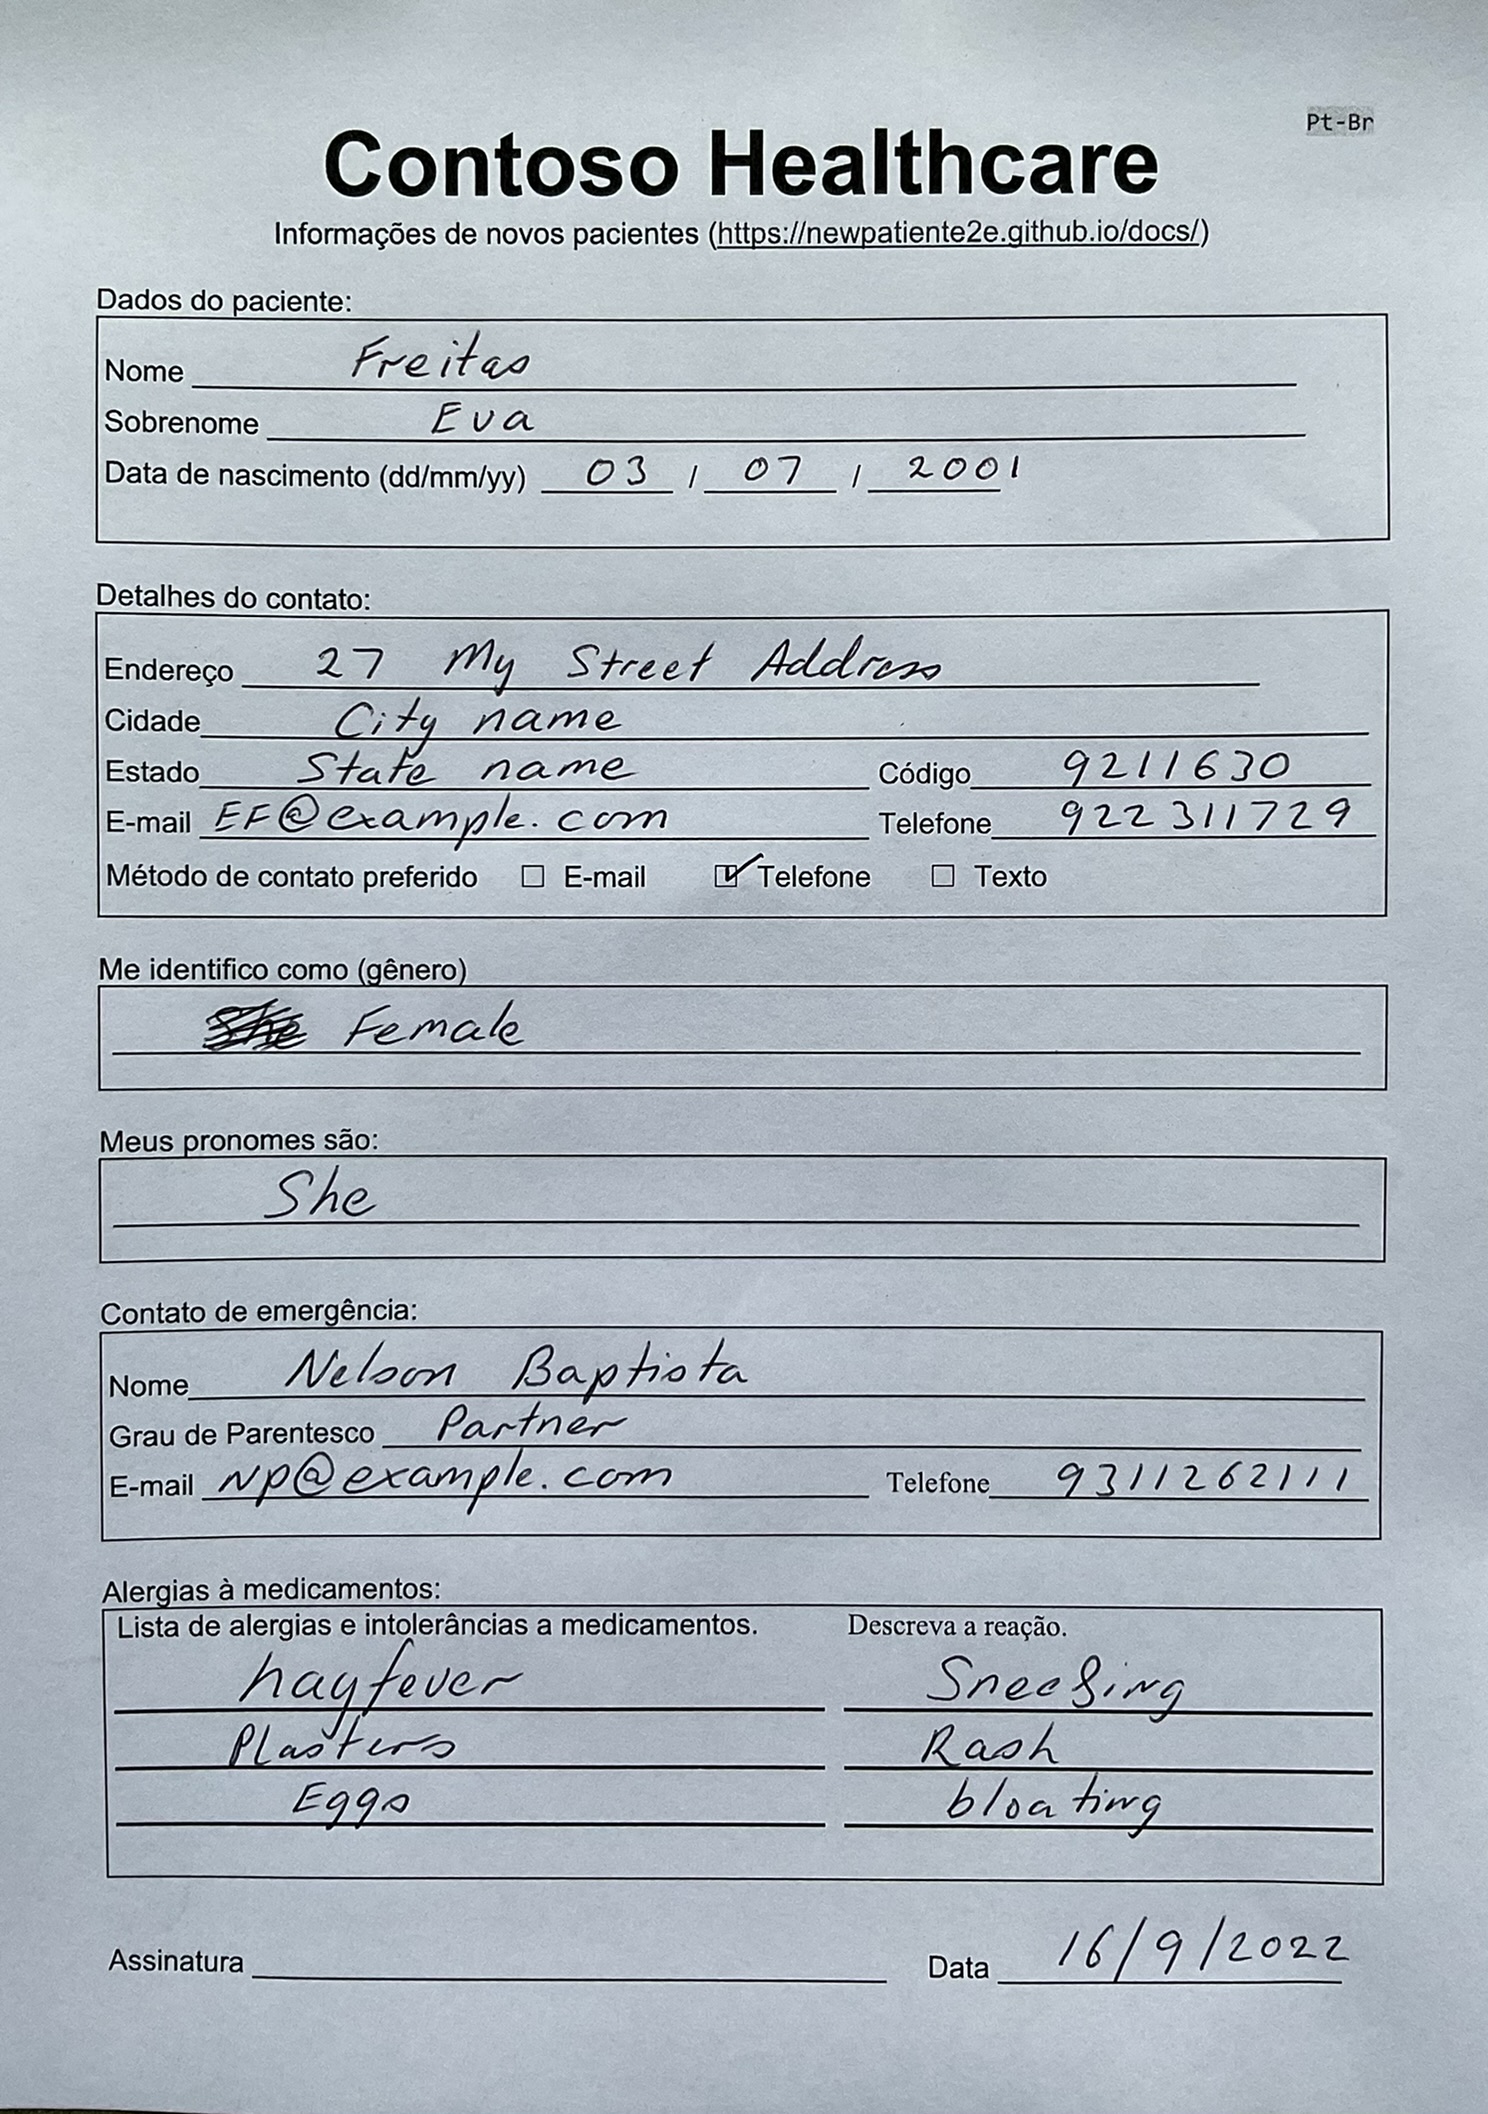 Pt-Br
Contoso Healthcare
Informações de novos pacientes (https://newpatiente2e.github.io/docs/)
Dados do paciente:
Nome Freitas
Sobrenome Eva
Data de nascimento (dd/mm/yy) 03 / 07 / 2001
Detalhes do contato:
Endereço 27 My Street Address
Cidade City name
Estado State name Código 9211630
E-mail EF@example.com Telefone 922311729
Método de contato preferido ☐ E-mail ☑ Telefone ☐ Texto
Me identifico como (gênero)
She Female
Meus pronomes são:
She
Contato de emergência:
Nome Nelson Baptista
Grau de Parentesco Partner
E-mail NP@example.com Telefone 9311262111
Alergias à medicamentos:
Lista de alergias e intolerâncias a medicamentos. Descreva a reação.
hayfever Sneezing
Plasters Rash
Eggs bloating
Assinatura Data 16/9/2022